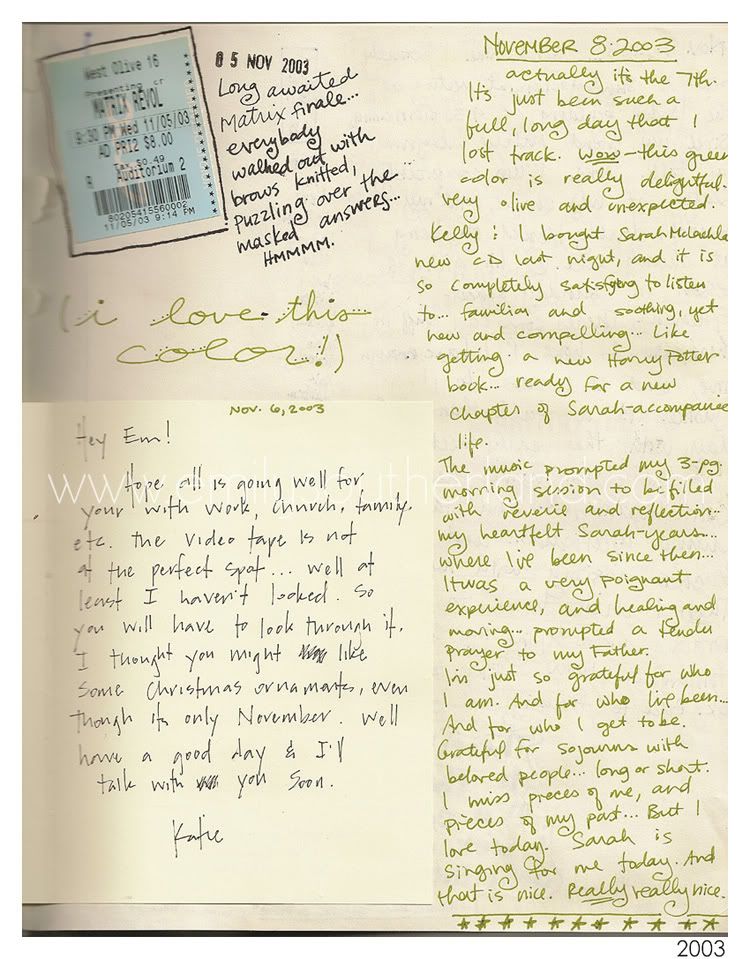 West Olive 16
Presenting
MATRIX REVOL
9:30 PM Wed 11/05/03
AD PRI2 $8.00
Tx. $0.49
Auditorium 2
80205415560002
11/05/03 9:14 PM
05 NOV 2003
Long awaited
Matrix finale...
everybody
walked out with
brows knitted,
puzzling over the
masked answers...
HMMMM.
(i love this
color!)
NOV. 6, 2003
Hey Em!
Hope all is going well for
your with work, church, family,
etc. The video tape is not
at the perfect spot... well at
least I haven't looked. So
you will have to look through it.
I thought you might like
some Christmas ornamants, even
though its only November. Well
have a good day & I'll
talk with you soon.
Katie
NOVEMBER 8.2003
actually it's the 7th.
It's just been such a
full, long day that I
lost track. Wow - this green
color is really delightful.
very olive and unexpected.
Kelly: I bought Sarah McLachla
new CD last night, and it is
so completely satisfying to listen
to... familiar and soothing, yet
new and compelling... Like
getting a new Harry Potter
book... ready for a new
chapter of Sarah-accompanie
life.
The music prompted my 3-pg.
morning session to be filled
with reverie and reflection...
my heartfelt Sarah-years...
where I've been since then...
It was a very poignant
experience, and healing and
moving... prompted a tender
prayer to my Father.
I'm just so grateful for who
I am. And for who I've been...
And for who I get to be.
Grateful for sojourns with
beloved people... long or short.
I miss pieces of me, and
pieces of my past... But I
love today. Sarah is
singing for me today. And
that is nice. Really really nice.
2003